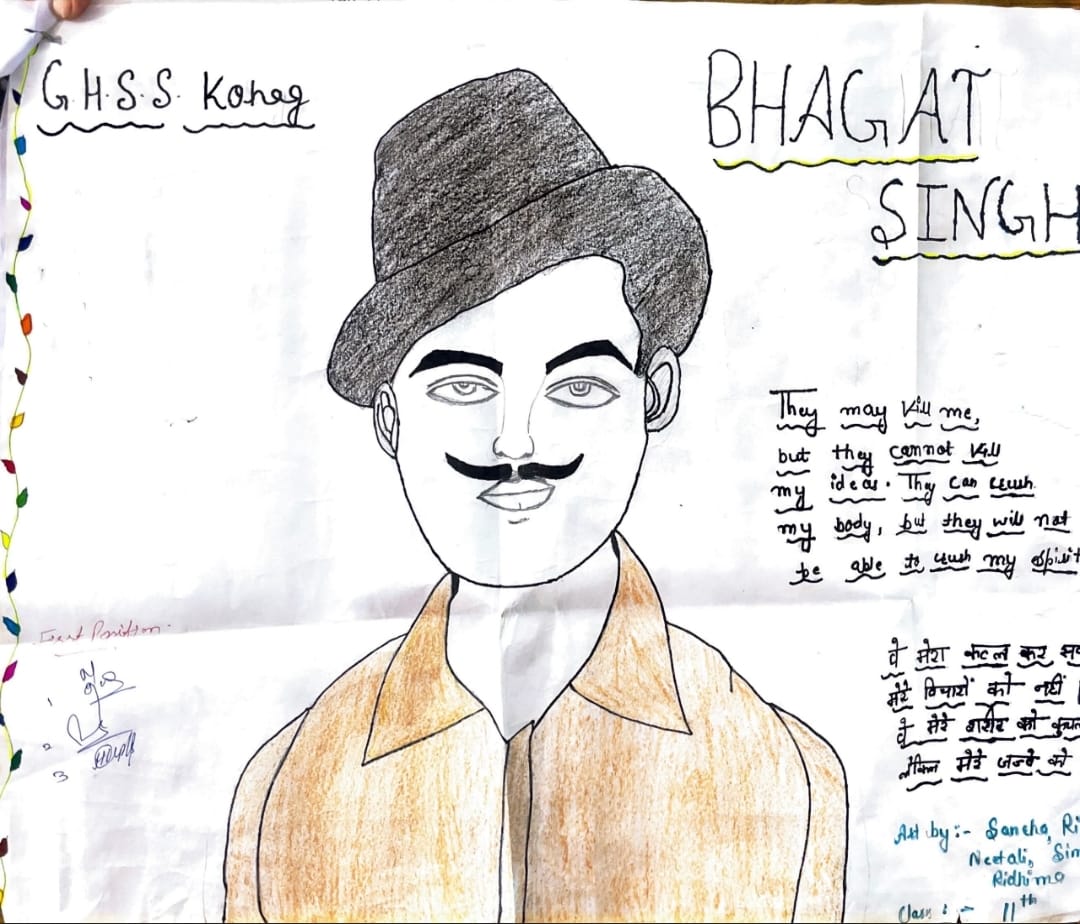 G.H.S.S. Koheg
BHAGAT
SINGH
They may kill me,
but they cannot kill
my ideas. They can crush
my body, but they will not
be able to crush my spirit
वे मेरा कत्ल कर
मेरे विचारों को नहीं
वे मेरे शरीर को
लेकिन मेरे जज्बे को
First Position.
1
2
3
Art by :- Sancha,
Neetali,
Ridhima
Class :- 11th